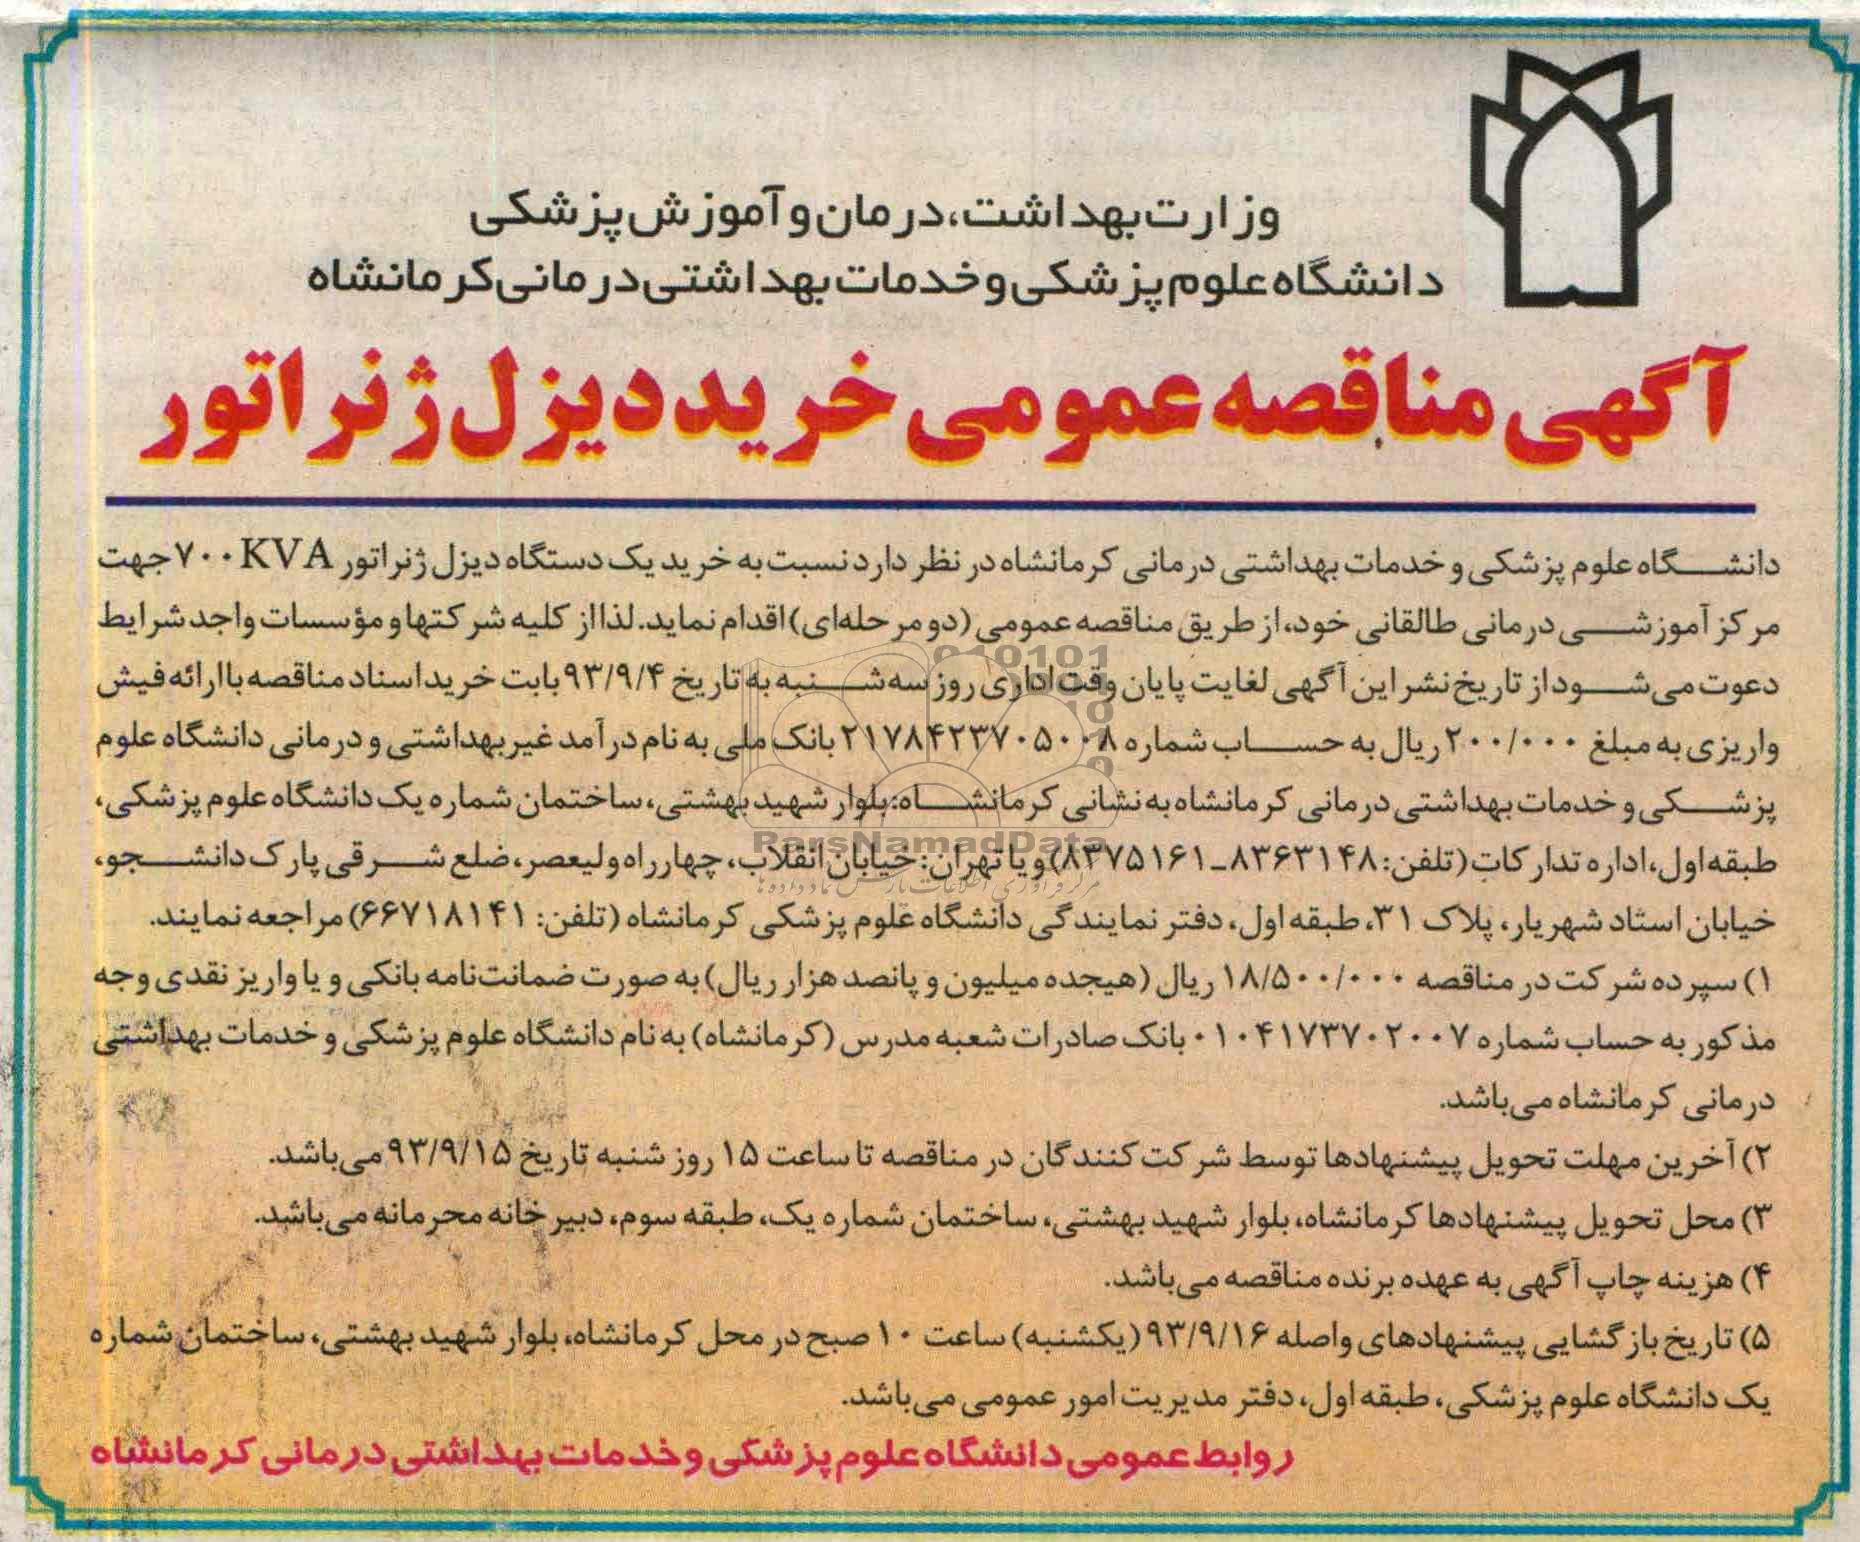 وزارت بهداشت، درمان و آموزش پزشکی
دانشگاه علوم پزشکی و خدمات بهداشتی درمانی کرمانشاه
آگهی مناقصه عمومی خرید دیزل ژنراتور
دانشگاه علوم پزشکی و خدمات بهداشتی درمانی کرمانشاه در نظر دارد نسبت به خرید یک دستگاه دیزل ژنراتور ۷۰۰KVA جهت
مرکز آموزشی درمانی طالقانی خود، از طریق مناقصه عمومی (دو مرحله‌ای) اقدام نماید. لذا از کلیه شرکتها و مؤسسات واجد شرایط
دعوت می‌شود از تاریخ نشر این آگهی لغایت پایان وقت اداری روز سه شنبه به تاریخ ۹۳/۹/۴ بابت خرید اسناد مناقصه با ارائه فیش
واریزی به مبلغ ۲۰۰/۰۰۰ ریال به حساب شماره ۲۱۷۸۴۲۳۷۰۵۰۰۸ بانک ملی به نام درآمد غیربهداشتی و درمانی دانشگاه علوم
پزشکی و خدمات بهداشتی درمانی کرمانشاه به نشانی کرمانشاه: بلوار شهید بهشتی، ساختمان شماره یک دانشگاه علوم پزشکی،
طبقه اول، اداره تدارکات (تلفن: ۸۳۶۳۱۴۸_۸۳۷۵۱۶۱) و یا تهران: خیابان انقلاب، چهارراه ولیعصر، ضلع شرقی پارک دانشجو،
خیابان استاد شهریار، پلاک ۳۱، طبقه اول، دفتر نمایندگی دانشگاه علوم پزشکی کرمانشاه (تلفن: ۶۶۷۱۸۱۴۱) مراجعه نمایند.
۱) سپرده شرکت در مناقصه ۱۸/۵۰۰/۰۰۰ ریال (هیجده میلیون و پانصد هزار ریال) به صورت ضمانت‌نامه بانکی و یا واریز نقدی وجه
مذکور به حساب شماره ۰۱۰۴۱۷۳۷۰۲۰۰۷ بانک صادرات شعبه مدرس (کرمانشاه) به نام دانشگاه علوم پزشکی و خدمات بهداشتی
درمانی کرمانشاه می‌باشد.
۲) آخرین مهلت تحویل پیشنهادها توسط شرکت کنندگان در مناقصه تا ساعت ۱۵ روز شنبه تاریخ ۹۳/۹/۱۵ می‌باشد.
۳) محل تحویل پیشنهادها کرمانشاه، بلوار شهید بهشتی، ساختمان شماره یک، طبقه سوم، دبیرخانه محرمانه می‌باشد.
۴) هزینه چاپ آگهی به عهده برنده مناقصه می‌باشد.
۵) تاریخ بازگشایی پیشنهادهای واصله ۹۳/۹/۱۶ (یکشنبه) ساعت ۱۰ صبح در محل کرمانشاه، بلوار شهید بهشتی، ساختمان شماره
یک دانشگاه علوم پزشکی، طبقه اول، دفتر مدیریت امور عمومی می‌باشد.
روابط عمومی دانشگاه علوم پزشکی و خدمات بهداشتی درمانی کرمانشاه
ParsNamadData